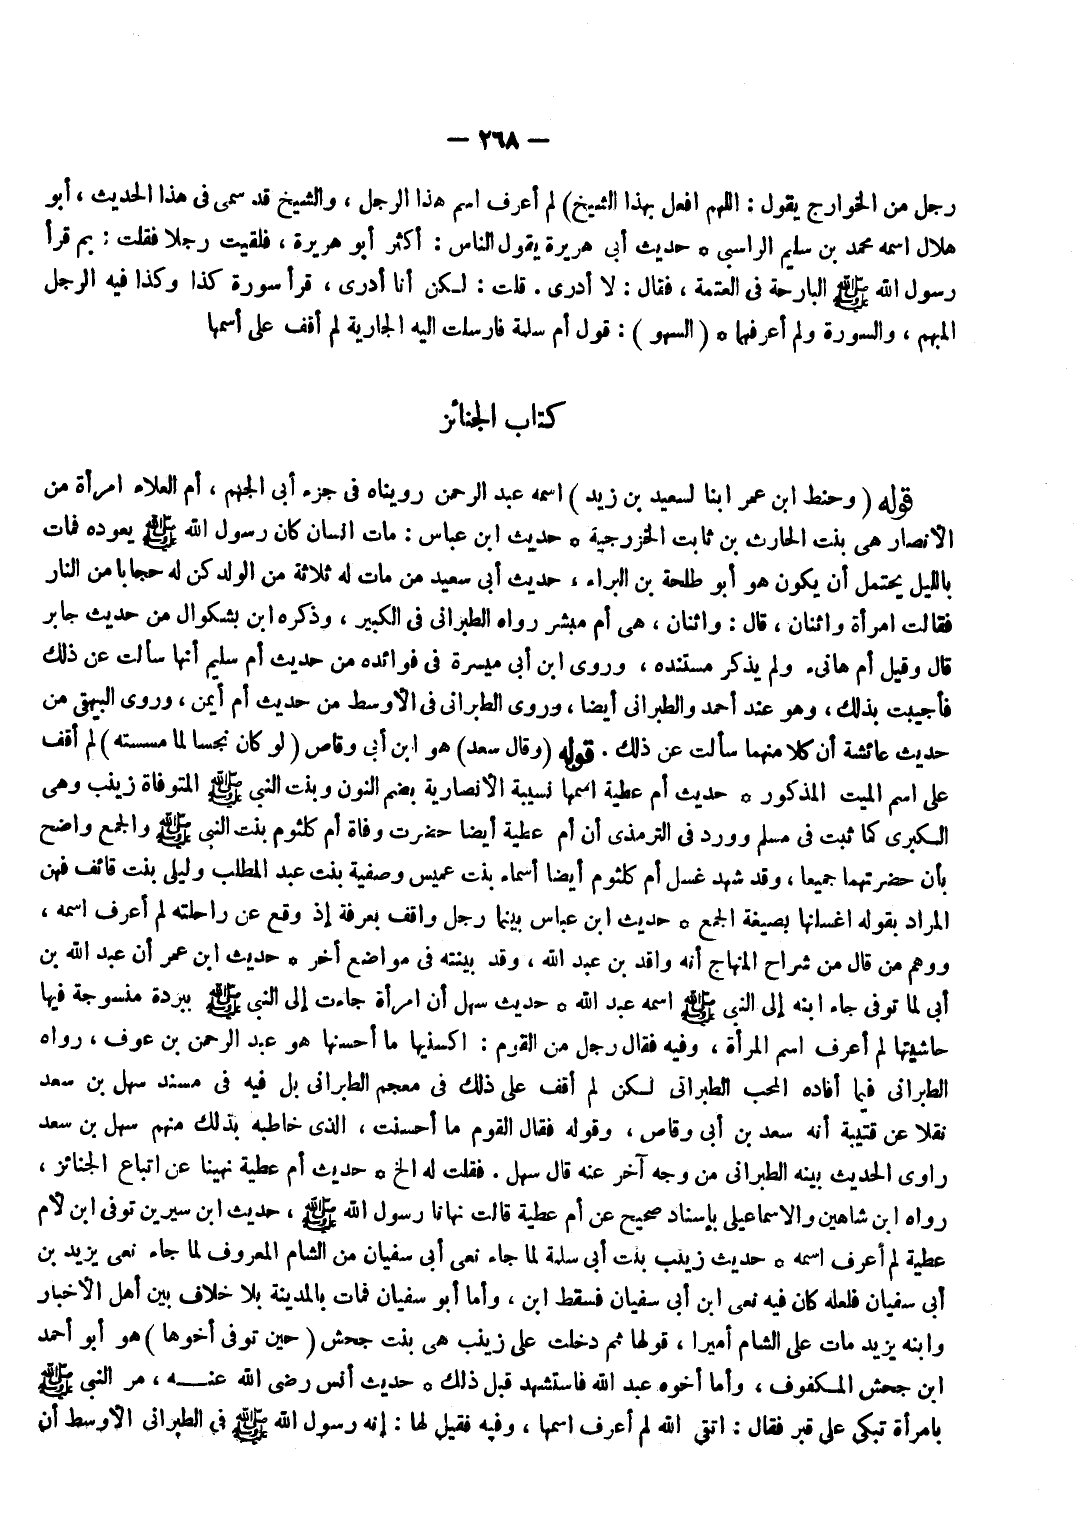 — ٢٦٨ —
رجل من الخوارج يقول : اللهم افعل بهذا الشيخ) لم أعرف اسم هذا الرجل ، والشيخ قد سمى فى هذا الحديث ، أبو
هلال اسمه محمد بن سليم الراسبى * حديث أبى هريرة يقول الناس : أكثر أبو هريرة ، فلقيت رجلا فقلت : بم قرأ
رسول الله ﷺ البارحة فى العتمة ، فقال : لا أدرى . قلت : لـكن أنا أدرى ، قرأ سورة كذا وكذا فيه الرجل
المبهم ، والسورة ولم أعرفها * ( السهو ) : قول أم سلمة فارسلت اليه الجارية لم أقف على أسمها
كتاب الجنائز
قوله ( وحنط ابن عمر ابنا لسعيد بن زيد ) اسمه عبد الرحمن رويناه فى جزء أبى الجهم ، أم العلاء امرأة من
الأنصار هى بنت الحارث بن ثابت الخزرجية * حديث ابن عباس : مات انسان كان رسول الله ﷺ يعوده فمات
بالليل يحتمل أن يكون هو أبو طلحة بن البراء ، حديث أبى سعيد من مات له ثلاثة من الولد كن له حجابا من النار
فقالت امرأة واثنان ، قال : واثنان ، هى أم مبشر رواه الطبرانى فى الكبير ، وذكره ابن بشكوال من حديث جابر
قال وقيل أم هانىء ولم يذكر مستنده ، وروى ابن أبى ميسرة فى فوائده من حديث أم سليم أنها سألت عن ذلك
فأجيبت بذلك ، وهو عند أحمد والطبرانى أيضا ، وروى الطبرانى فى الأوسط من حديث أم أيمن ، وروى البيهقى من
حديث عائشة أن كلا منهما سألت عن ذلك . قوله (وقال سعد) هو ابن أبى وقاص ( لو كان نجسا لما مسسته ) لم أقف
على اسم الميت المذكور * حديث أم عطية اسمها نسيبة الأنصارية بضم النون وبنت النبى ﷺ المتوفاة زينب وهى
الـكبرى كما ثبت فى مسلم وورد فى الترمذى أن أم عطية أيضا حضرت وفاة أم كلثوم بنت النبى ﷺ والجمع واضح
بأن حضرتهما جميعا ، وقد شهد غسل أم كلثوم أيضا أسماء بنت عميس وصفية بنت عبد المطلب وليلى بنت قائف فهن
المراد بقوله اغسلنها بصيغة الجمع * حديث ابن عباس بينما رجل واقف بعرفة إذ وقع عن راحلته لم أعرف اسمه ،
ووهم من قال من شراح المنهاج أنه واقد بن عبد الله ، وقد بينته فى مواضع أخر * حديث ابن عمر أن عبد الله بن
أبى لما توفى جاء ابنه إلى النبى ﷺ اسمه عبد الله * حديث سهل أن امرأة جاءت إلى النبى ﷺ ببردة منسوجة فيها
حاشيتها لم أعرف اسم المرأة ، وفيه فقال رجل من القوم : اكسنيها ما أحسنها هو عبد الرحمن بن عوف ، رواه
الطبرانى فيما أفاده المحب الطبرانى لـكن لم أقف على ذلك فى معجم الطبرانى بل فيه فى مسند سهل بن سعد
نقلا عن قتيبة أنه سعد بن أبى وقاص ، وقوله فقال القوم ما أحسنت ، الذى خاطبه بذلك منهم سهل بن سعد
راوى الحديث بينه الطبرانى من وجه آخر عنه قال سهل . فقلت له الخ * حديث أم عطية نهينا عن اتباع الجنائز ،
رواه ابن شاهين والاسماعيلى بإسناد صحيح عن أم عطية قالت نهانا رسول الله ﷺ ، حديث ابن سيرين توفى ابن لأم
عطية لم أعرف اسمه * حديث زينب بنت أبى سلمة لما جاء نعى أبى سفيان من الشام المعروف لما جاء نعى يزيد بن
أبى سفيان فلعله كان فيه نعى ابن أبى سفيان فسقط ابن ، وأما أبو سفيان فمات بالمدينة بلا خلاف بين أهل الأخبار
وابنه يزيد مات على الشام أميرا ، قولها ثم دخلت على زينب هى بنت جحش ( حين توفى أخوها ) هو أبو أحمد
ابن جحش المـكفوف ، وأما أخوه عبد الله فاستشهد قبل ذلك * حديث أنس رضى الله عنـــه ، مر النبى ﷺ
بامرأة تبكى على قبر فقال : اتقى الله لم أعرف اسمها ، وفيه فقيل لها : إنه رسول الله ﷺ فى الطبرانى الأوسط أن